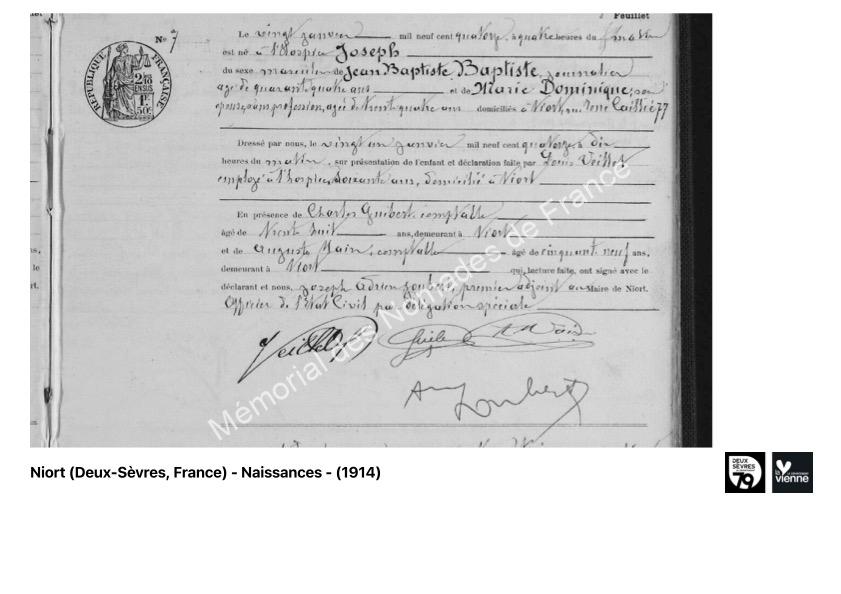 Feuillet
N° 7
RÉPUBLIQUE FRANÇAISE
Le vingt janvier mil neuf cent quatorze, à quatre heures du matin
est né à l'hospice Joseph
du sexe masculin de Jean Baptiste Baptiste, journalier
age de quarante quatre ans et de Marie Dominique, son
épouse, sans profession, agée de trente quatre ans domiciliés à Niort, rue René Caillié 77
Dressé par nous, le vingt un janvier mil neuf cent quatorze à dix
heures du matin, sur présentation de l'enfant et déclaration faite par Louis Veillet
employé à l'hospice, soixante ans, domicilié à Niort
En présence de Charles Guibert, comptable
âgé de trente huit ans, demeurant à Niort
et de Auguste Main, comptable âgé de cinquante neuf ans,
demeurant à Niort qui, lecture faite, ont signé avec le
déclarant et nous, Joseph Adrien Joubert, premier adjoint au Maire de Niort.
Officier de l'Etat Civil par délégation spéciale
Mémorial des Nomades de France
Niort (Deux-Sèvres, France) - Naissances - (1914)
DEUX
SÈVRES
79
la
vienne